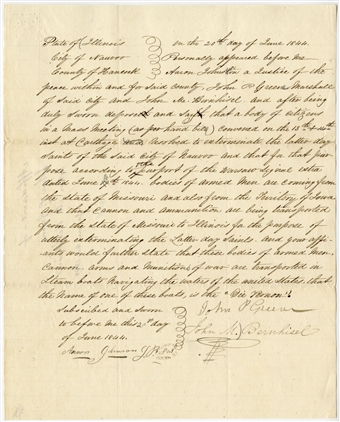 State of Illinois on the 20th day of June 1844.
City of Nauvoo Personally appeared before me
County of Hancock Aaron Johnson a Justice of the
peace within and for said county, John P Greene Marshall
of said city and John M. Bernhisel and after being
duly Sworn deposeth and Saith that a body of citizens
in a Mass Meeting (as per hand bill) convened on the 13th & 14th
inst at Carthage resolved to exterminate the latter day
Saints of the Said City of Nauvoo and that for that pur
pose according to the purport of the Warsaw Signal extra
dated June 14. bodies of armed men are coming from
the state of Missouri and also from the Territory of Iowa
and that Cannon and Ammunition are being transported
from the state of Missouri to Illinois for the purpose of
utterly exterminating the Latter day Saints. and your affi
ants would further State that these bodies of armed men,
Cannon, arms and Munitions of war are transported in
Steam boats navigating the waters of the united States, that
the Name of one of these boats, is the "Die Vernon"
Subscribed and Sworn John P Greene
to before me this day John M. Bernhisel
of June 1844.
Aaron Johnson J.P.